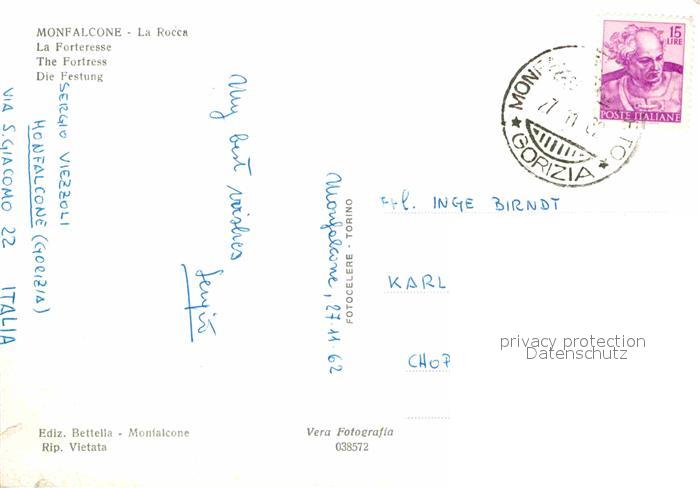 MONFALCONE - La Rocca
La Forteresse
The Fortress
Die Festung
SERGIO VIEZZOLI
MONFALCONE (GORIZIA)
VIA S. GIACOMO 22 ITALIA
My best wishes
Sergio
Monfalcone, 27.11.62
FOTOCELERE - TORINO
15
LIRE
POSTE ITALIANE
GORIZIA
Frl. INGE BIRNDT
KARL
CHOP
privacy protection
Datenschutz
Ediz. Bettella - Monfalcone
Rip. Vietata
Vera Fotografia
038572